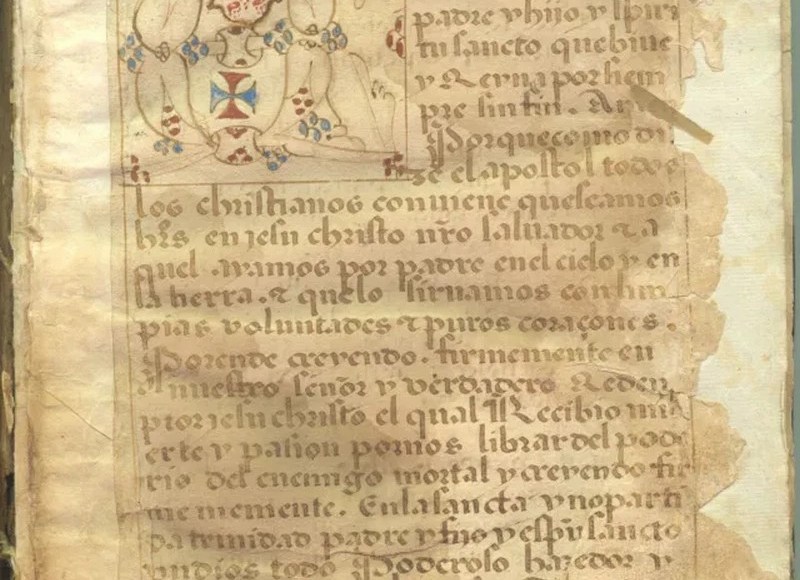 padre y hijo y spiri
tu sancto que biue
y Reyna por siem
pre sin fin. Am
Porque como di
ze el apostol todos
los christianos conviene que seamos
hrs en jesu christo nro saluador & a
quel ayamos por padre en el cielo y en
la tierra. & que lo siruamos con lim
pias voluntades & puros coraçones.
Por ende creyendo. firmemente en
nuestro señor y verdadero Reden
ptor jesu christo el qual Recibio mu
erte y pasion por nos librar del pode
rio del enemigo mortal y creyendo fir
me mente. En la sancta y no parti
da trinidad padre y fijo y espu sancto
vn dios todo Poderoso hazedor y